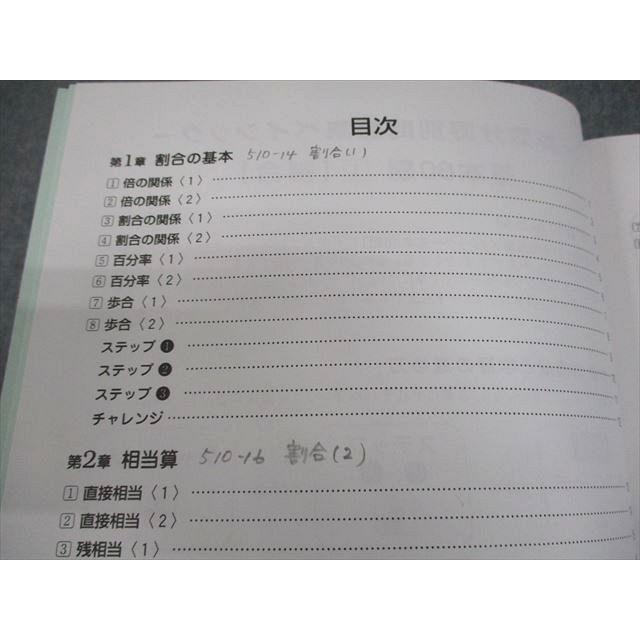 目次
第1章 割合の基本 510-14 割合(1)
1 倍の関係〈1〉
2 倍の関係〈2〉
3 割合の関係〈1〉
4 割合の関係〈2〉
5 百分率〈1〉
6 百分率〈2〉
7 歩合〈1〉
8 歩合〈2〉
ステップ❶
ステップ❷
ステップ❸
チャレンジ
第2章 相当算 510-16 割合(2)
1 直接相当〈1〉
2 直接相当〈2〉
3 残相当〈1〉